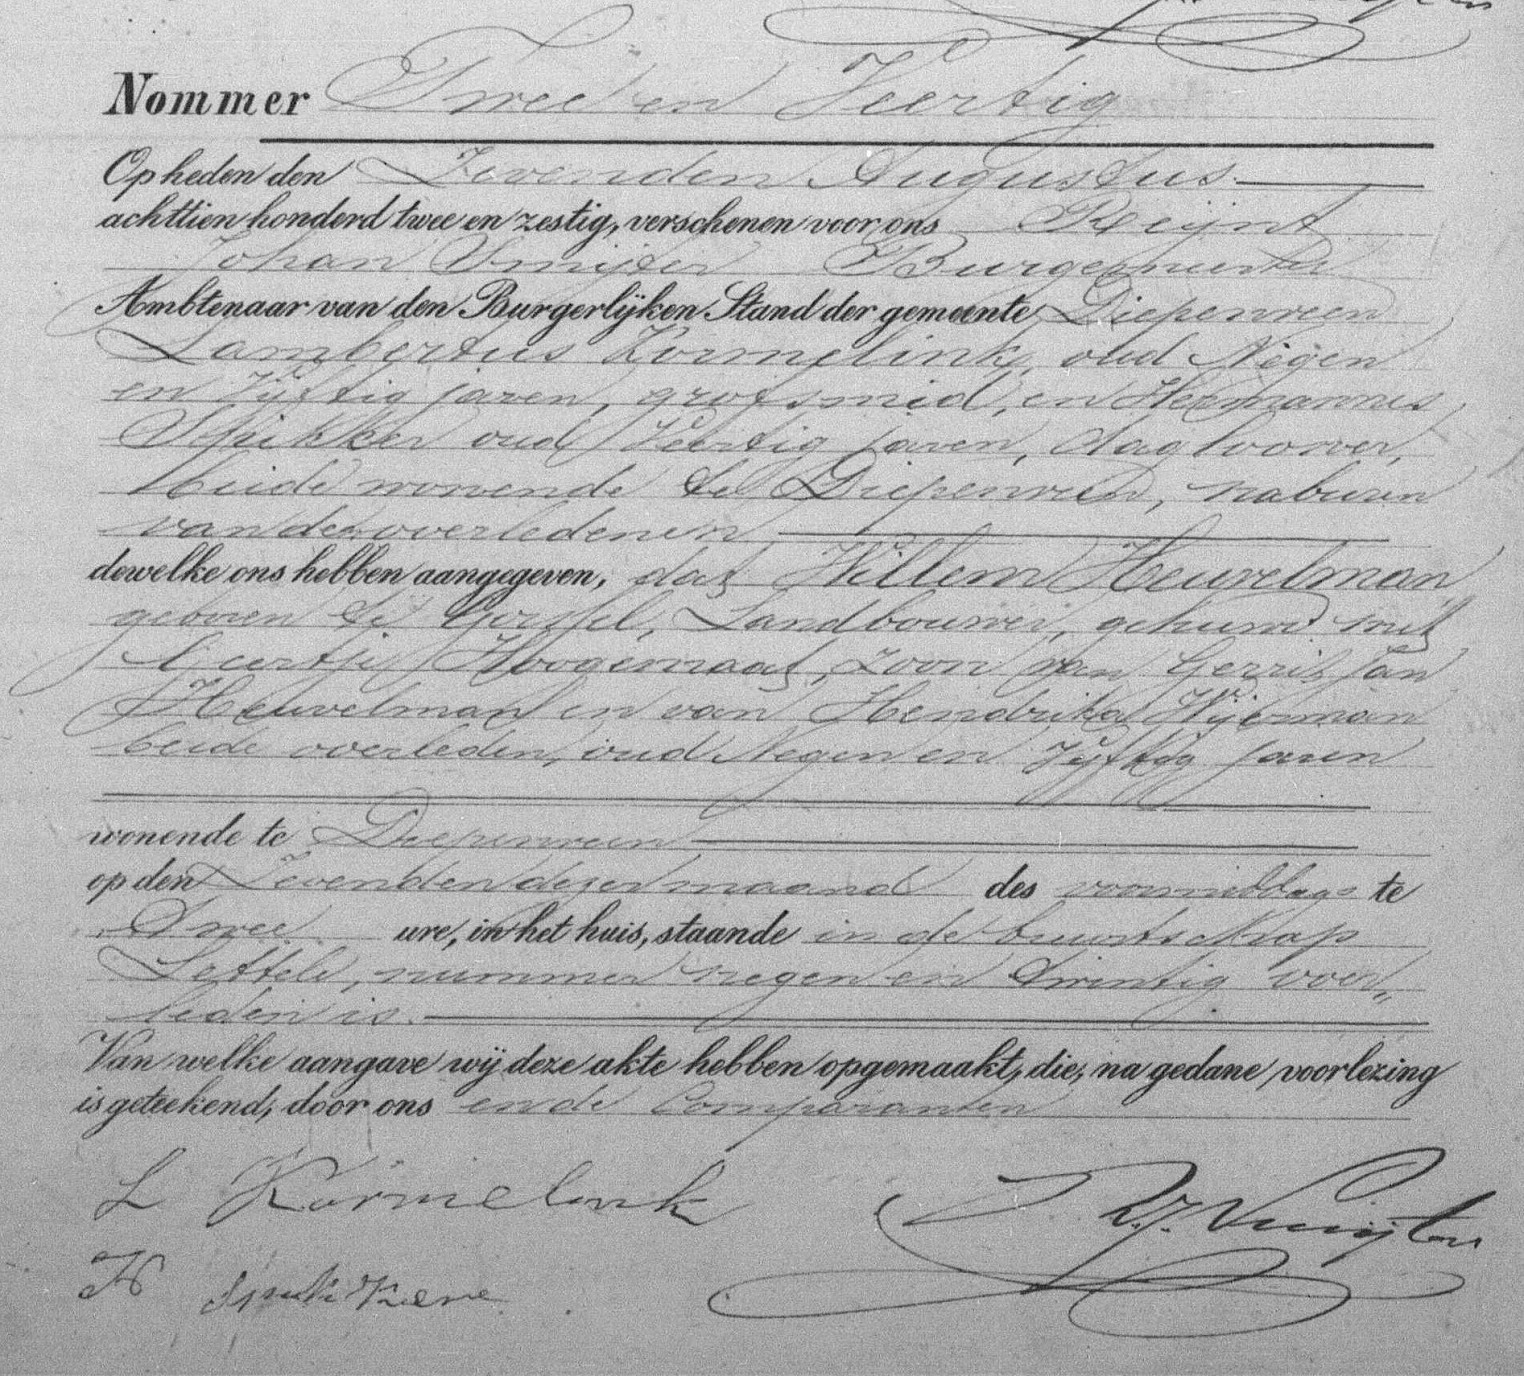 Nommer Twee en Veertig
Op heden den Zevenden Augustus
achttien honderd twee en zestig, verschenen voor ons Reijnt
Johan Smijter Burgemeester
Ambtenaar van den Burgerlijken Stand der gemeente Diepenveen
Lambertus Kormelink, oud Negen
en Vijftig jaren, grofsmid, en Hermannus
Spikker oud Veertig jaren, daglooner,
beide wonende te Diepenveen, naburen
van den overledenen
dewelke ons hebben aangegeven, dat Willem Heuvelman
geboren te Gorssel, Landbouwer, gehuwd met
Geertje Hoogemaat, zoon van Gerrit Jan
Heuvelman en van Hendrika Wijerman
beide overleden, oud Negen en Vijftig jaren
wonende te Diepenveen
op den Zevenden dezer maand des voormiddags te
Twee ure, in het huis, staande in de buurtschap
Lettele, nummer negen en twintig over„
leden is.
Van welke aangave wij deze akte hebben opgemaakt, die, na gedane voorlezing
is geteekend, door ons en de Comparanten
L Kormelink
R.J. Smijter
H